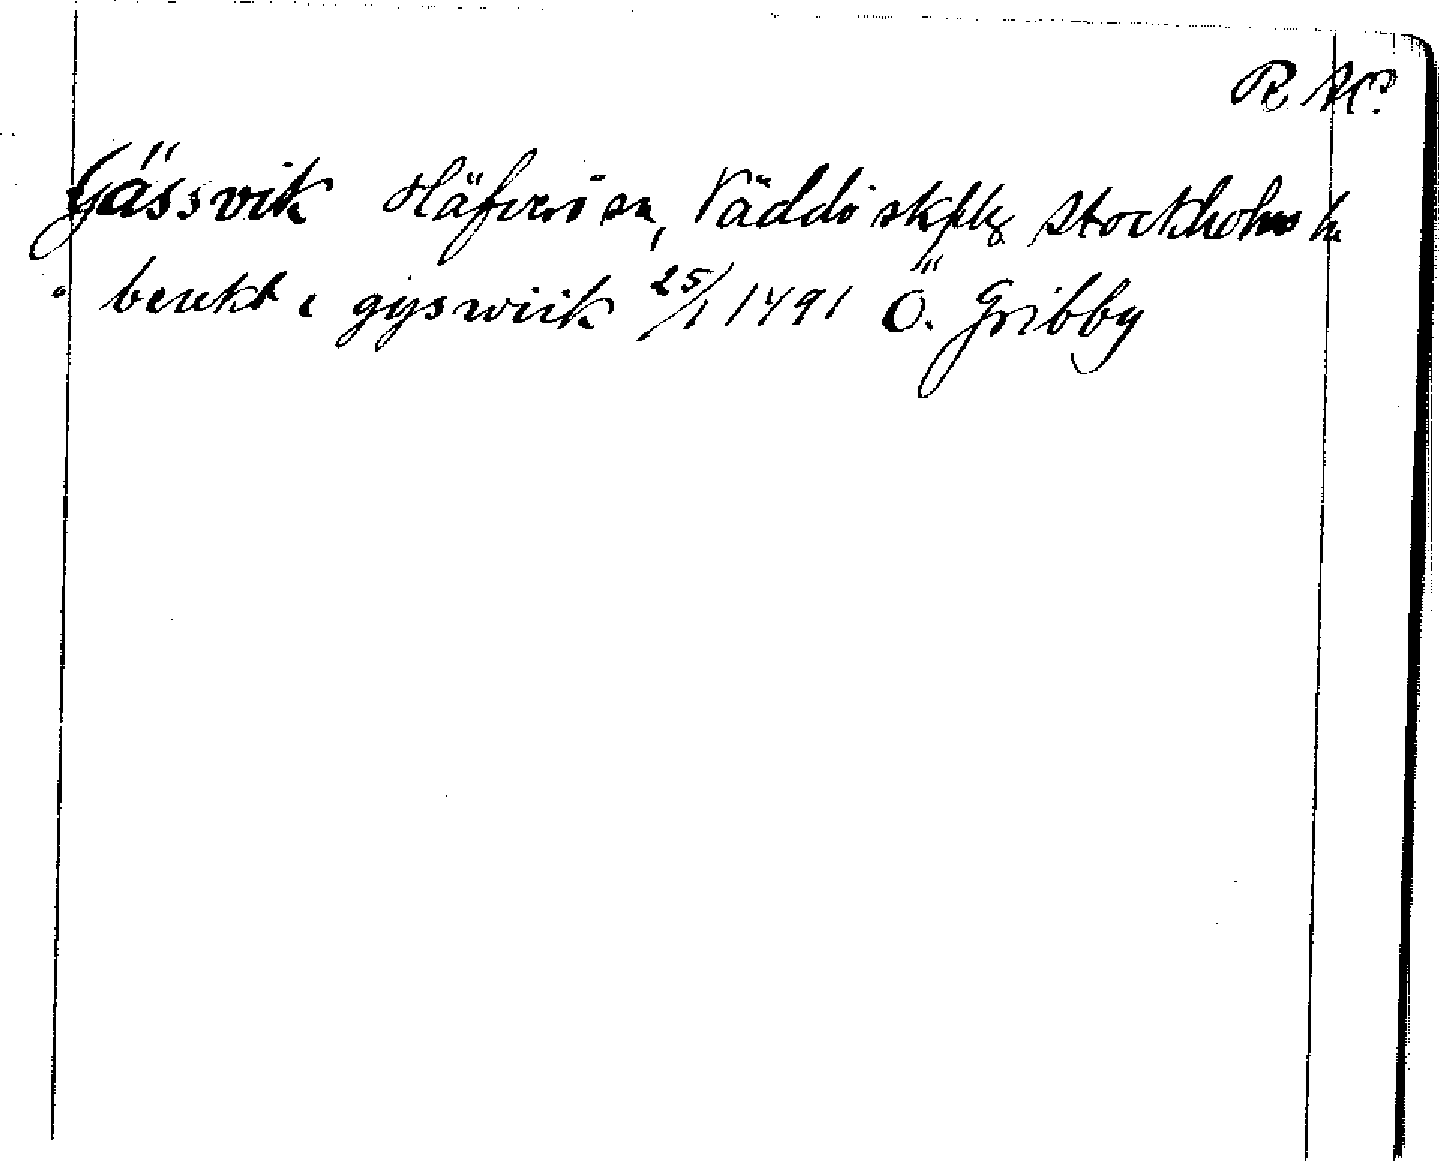 Gässvik Häfverö sn, Väddö skplg Stockholms l.
benekt i gijswiik 25/1 1491 Ö. Gribby